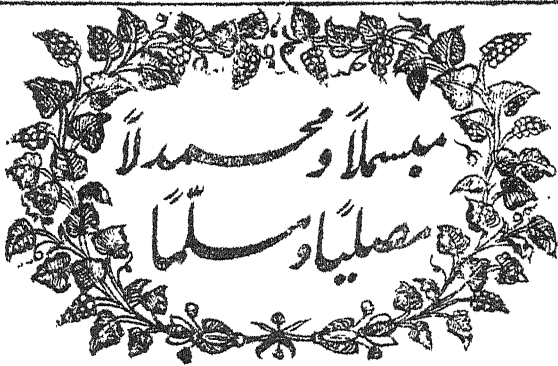 مبسملاً و محمدلاً
مصلیاً و مسلّماً